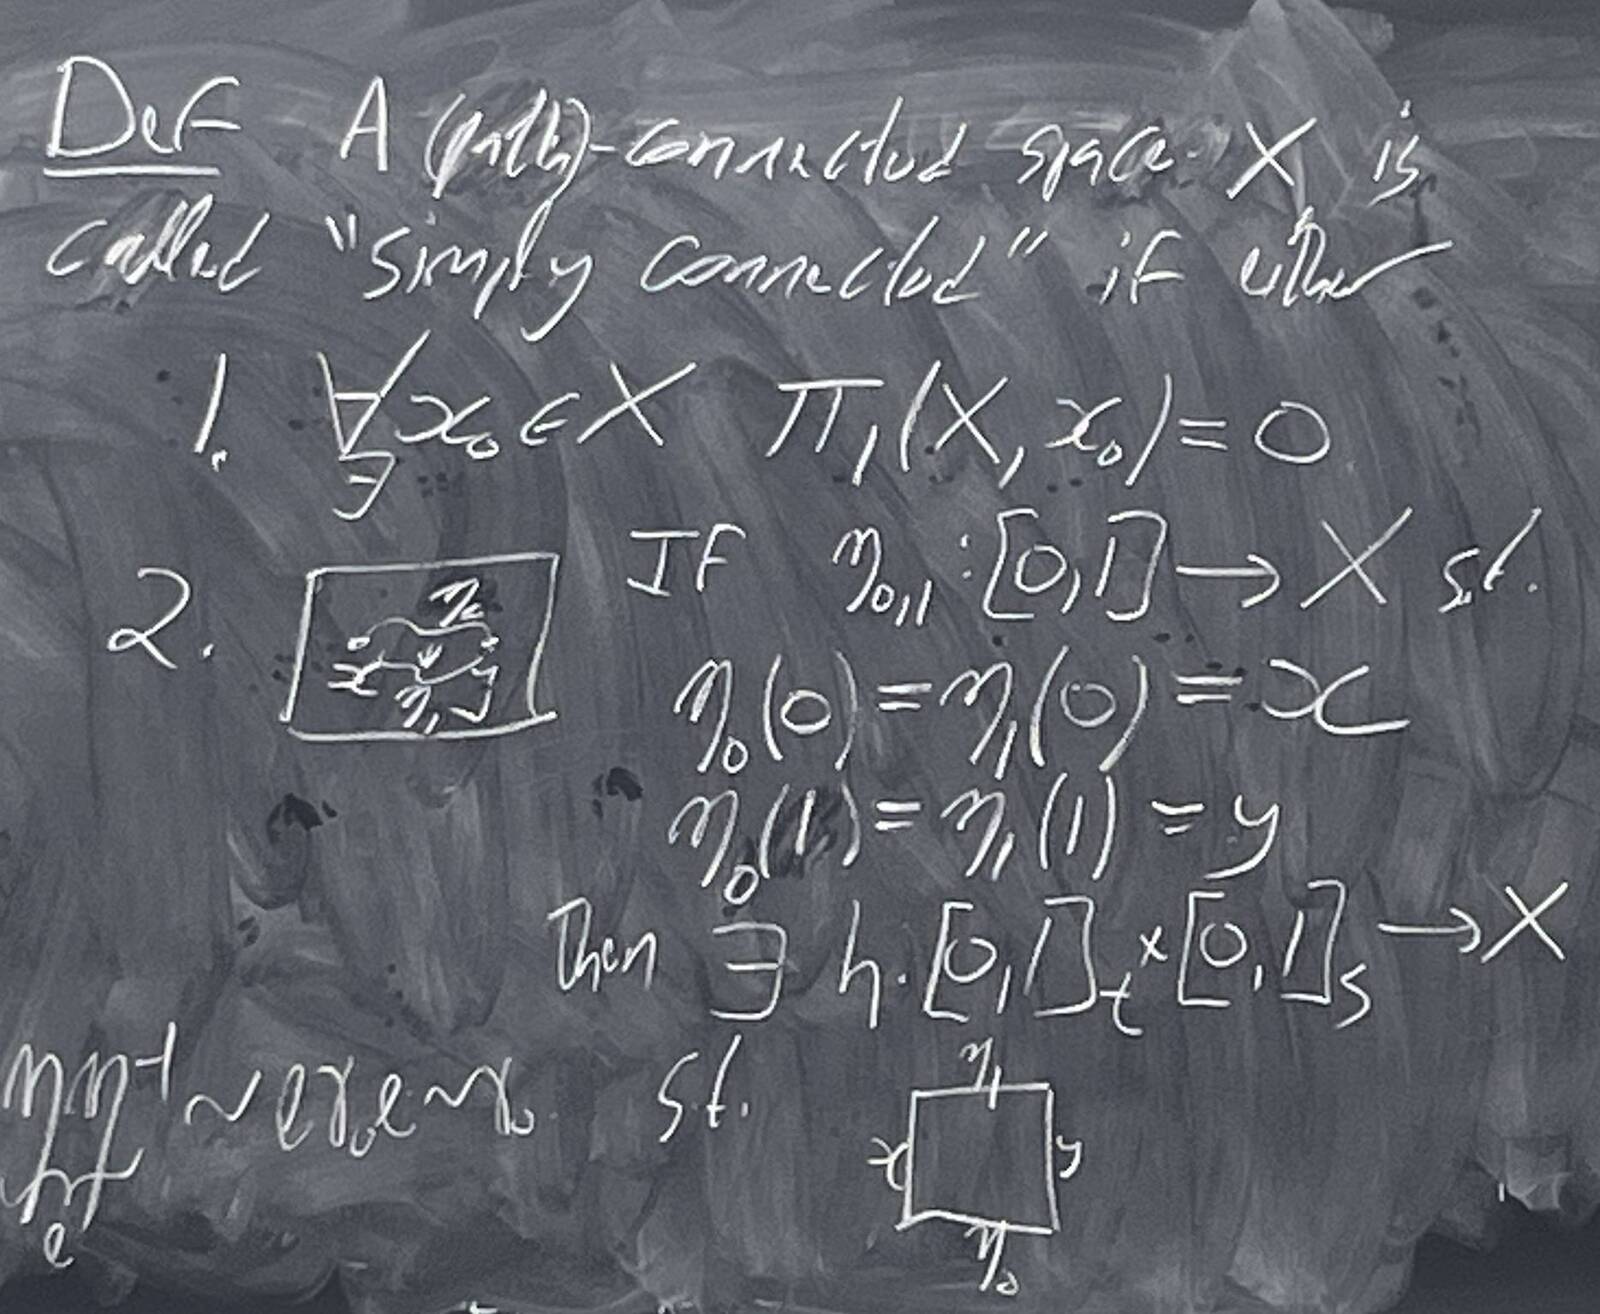 Def A (path)-connected space X is
called "simply connected" if either
1. ∀ x₀ ∈ X π₁(X, x₀) = 0
∃
2. η₀ x y η₁ If η₀,₁ : [0,1] → X s.t.
η₀(0) = η₁(0) = x
η₀(1) = η₁(1) = y
Then ∃ h: [0,1]ₜ × [0,1]ₛ → X
s.t.
η₁
x y
η₀
ηη⁻¹ ~
e